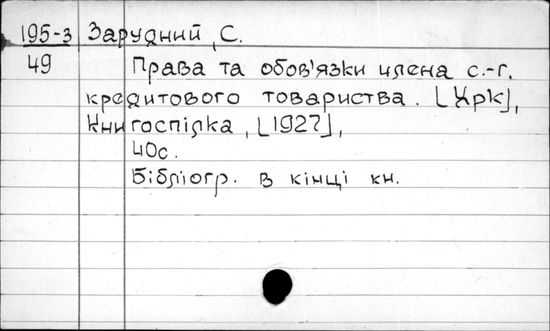 195-з Зарудний, С.
49 Права та обов'язки члена с.-г.
кредитового товариства. [Хрк],
Книгоспілка, [1927],
40с.
Бібліогр. в кінці кн.